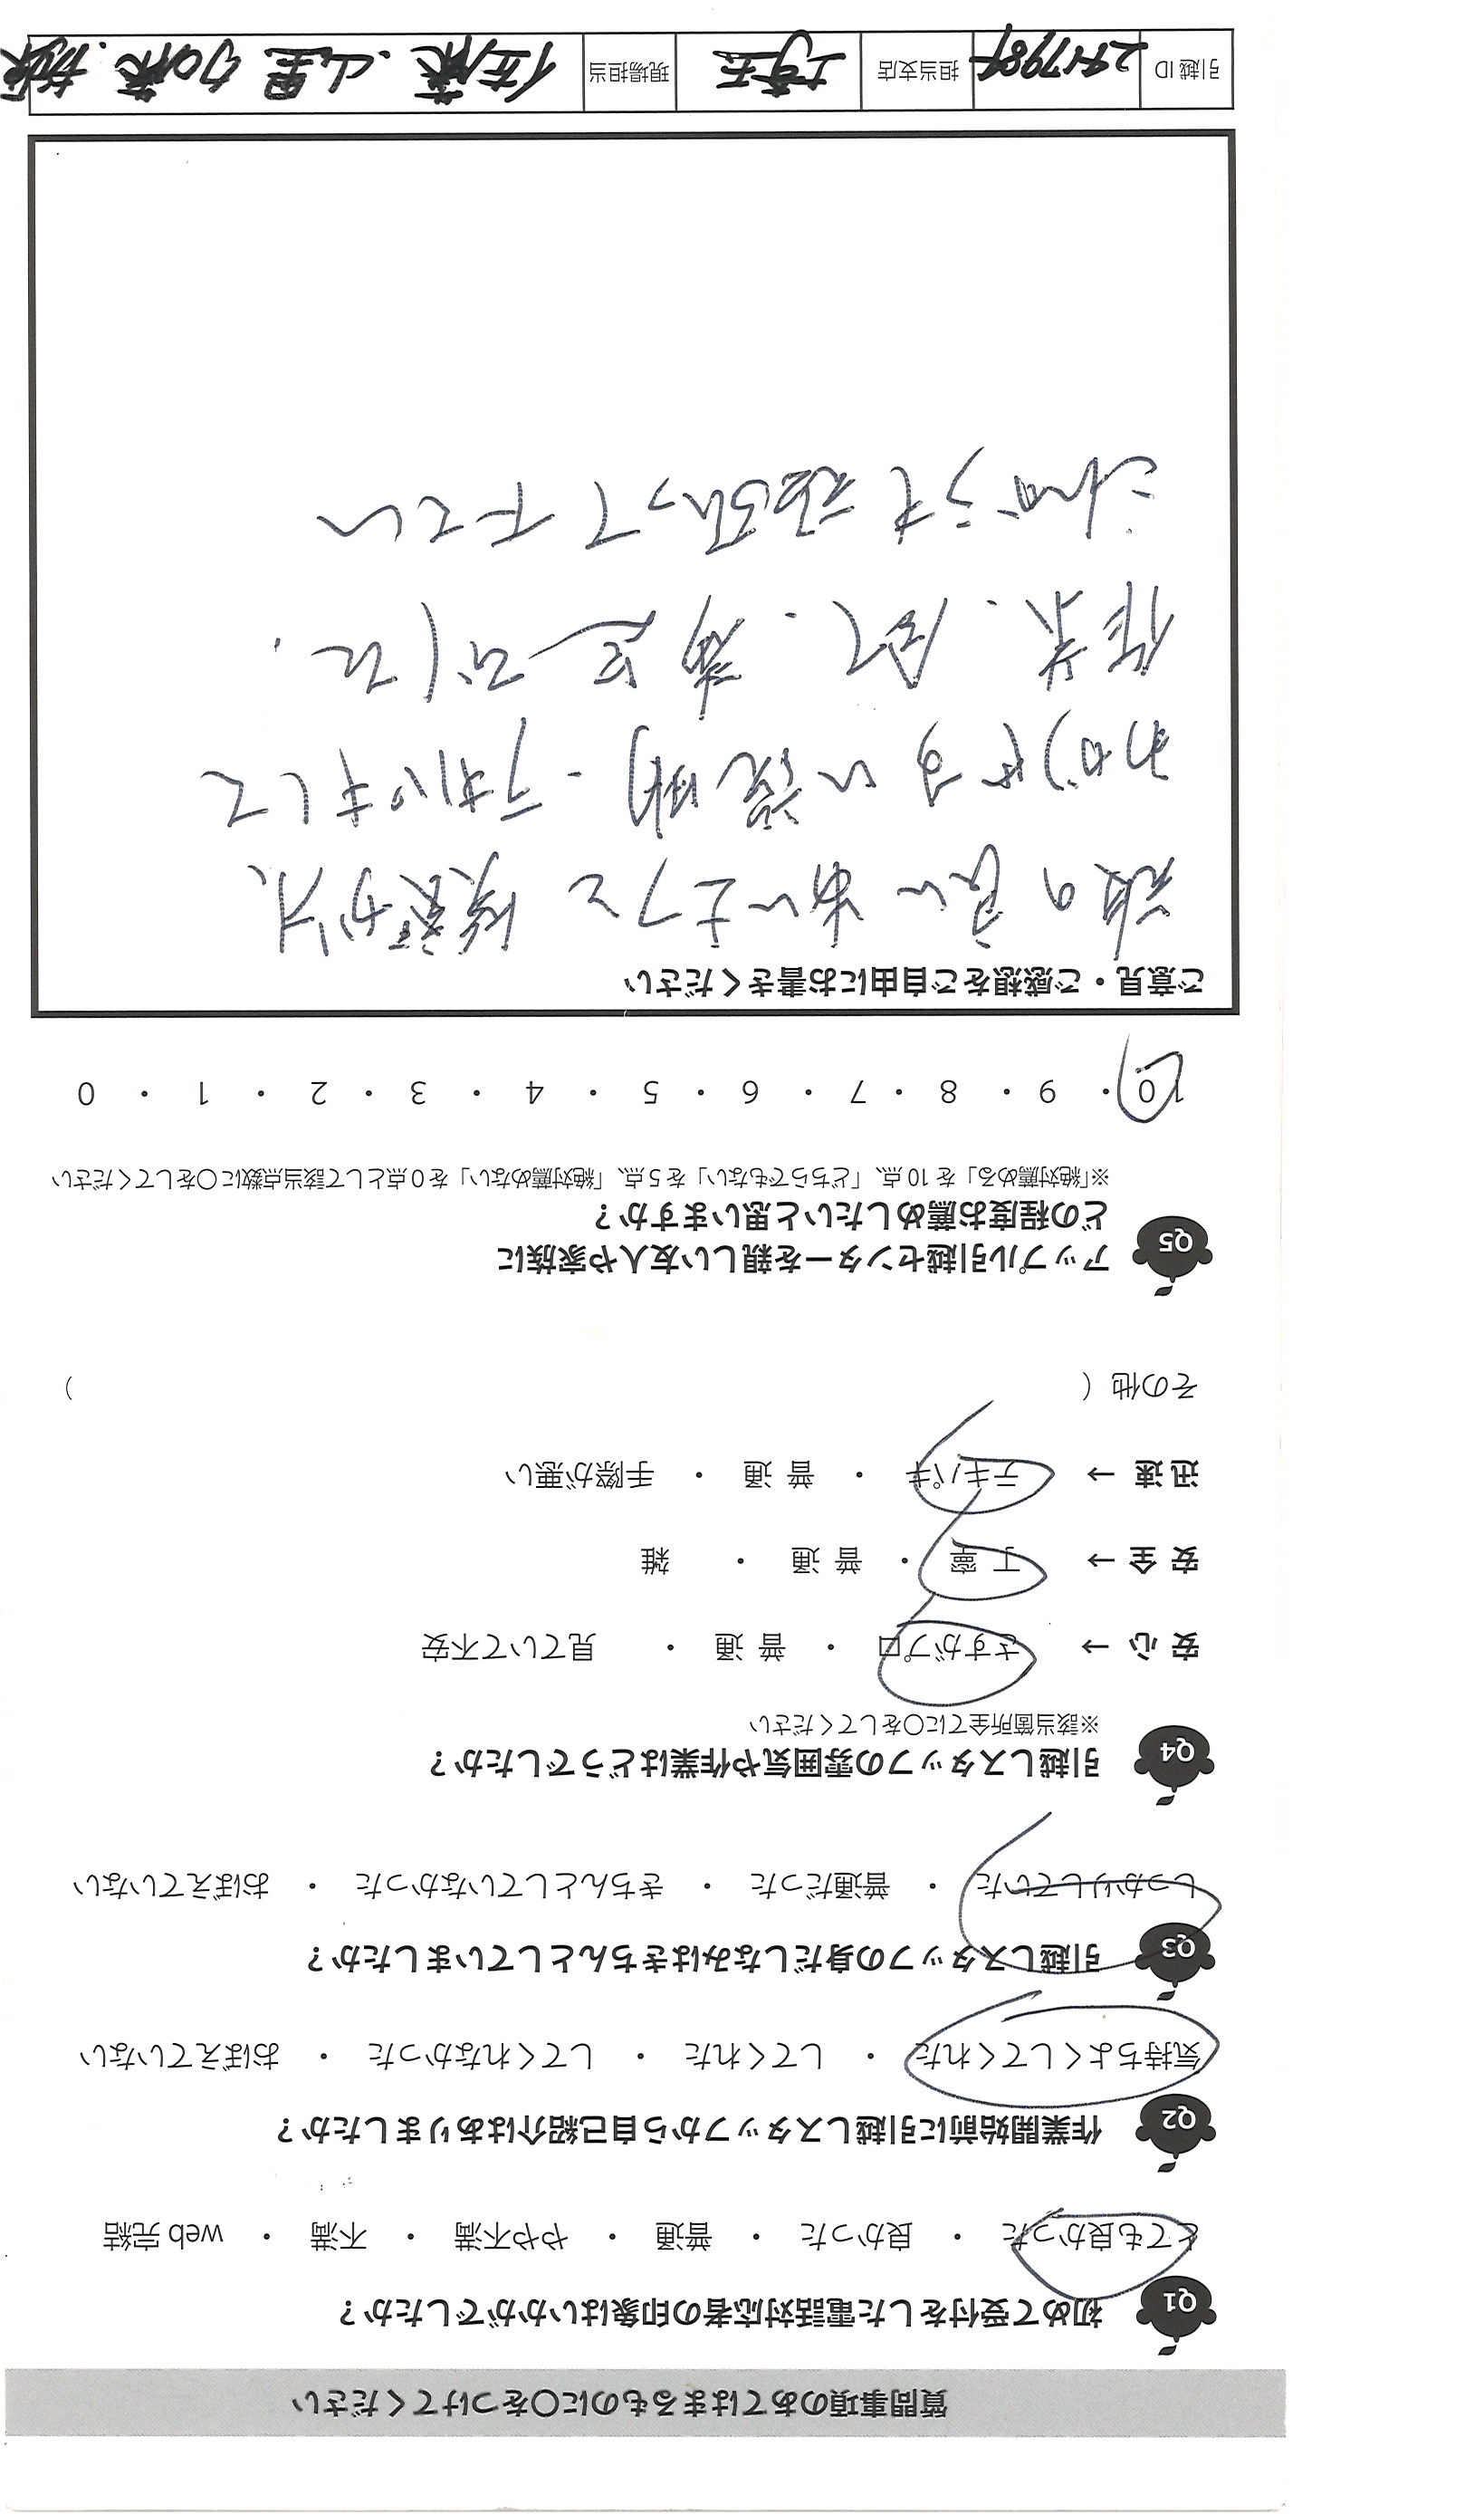 質問事項のあてはまるものに〇をつけてください
Q1 初めて受付をした電話対応者の印象はいかがでしたか？
とても良かった ・ 良かった ・ 普通 ・ やや不満 ・ 不満 ・ web 完結
Q2 作業開始前に引越しスタッフから自己紹介はありましたか？
気持ちよくしてくれた ・ してくれた ・ してくれなかった ・ おぼえていない
Q3 引越しスタッフの身だしなみはきちんとしていましたか？
しっかりしていた ・ 普通だった ・ きちんとしていなかった ・ おぼえていない
Q4 引越しスタッフの雰囲気や作業はどうでしたか？
※該当箇所全てに〇をしてください
安 心 → さすがプロ ・ 普 通 ・ 見ていて不安
安 全 → 丁 寧 ・ 普 通 ・ 雑
迅 速 → テキパキ ・ 普 通 ・ 手際が悪い
その他（ ）
Q5 アップル引越センターを親しい友人や家族に
どの程度お薦めしたいと思いますか？
※「絶対薦める」を 10 点、「どちらでもない」を 5 点、「絶対薦めない」を 0 点として該当点数に〇をしてください
10 ・ 9 ・ 8 ・ 7 ・ 6 ・ 5 ・ 4 ・ 3 ・ 2 ・ 1 ・ 0
ご意見・ご感想をご自由にお書きください
の良いあいさつと
わかりやすい説明・テキパキして
作業
これからも頑張って下さい
引越 ID 担当支店 埼玉 現場担当 佐藤.山里 加藤.